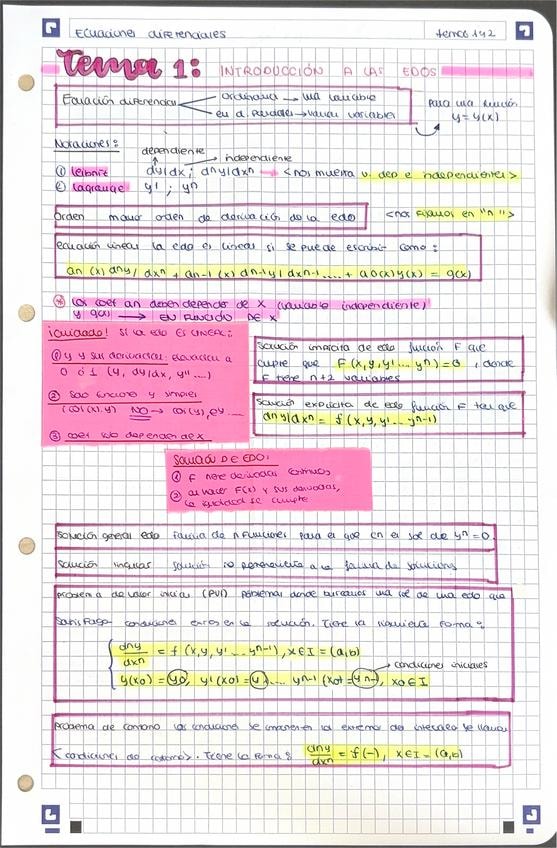 Ecuaciones diferenciales temas 1 y 2
Tema 1: INTRODUCCIÓN A LAS EDOS
Ecuación diferencial ordinaria → una variable
en d. parciales → varias variables
para una función
y = y(x)
Notaciones:
dependiente
independiente
① leibniz dy/dx ; dny/dxn → <nos muestra v. dep e independientes>
② lagrange y' ; yn
Orden mayor orden de derivación de la edo <nos fijamos en "n">
ecuación lineal la edo es lineal si se puede escribir como:
an (x) dny/dxn + an-1 (x) dn-1y/dxn-1.... + a0(x)y(x) = g(x)
* los coef an deben depender de x (variable independiente)
y g(x) → EN FUNCIÓN DE X
¡cuidado! Si la edo ES LINEAL:
① y y sus derivadas elevadas a
0 ó 1 (y, dy/dx, y''...)
② Sao funciones y simples
(cos(x).y) NO → cos(y), ey ...
③ coef solo dependen de x
solución implícita de edo función F que
cumple que F(x,y,y'... yn)=0, donde
F tiene n+2 variables
solución explícita de edo función F tal que
dny/dxn = f(x,y,y'... yn-1)
SOLUCIÓN DE EDO:
① F tiene derivadas continuas
② al hacer F(x) y sus derivadas,
la igualdad se cumple
solución general edo familia de n funciones para el que en el sol de yn=0
solución singular solución no perteneciente a la familia de soluciones
problema de valor inicial (PVI) problemas donde buscamos una sol de una edo que
satisfaga condiciones en la solución. Tiene la siguiente forma:
dny/dxn = f(x,y,y'... yn-1), x∈I = (a,b)
condiciones iniciales
y(x0) = y0, y'(x0) = y1 ... yn-1 (x0) = yn-1, x0∈I
problema de contorno las condiciones se imponen en los extremos del intervalo se llaman
<condiciones de contorno>. Tiene la forma: dny/dxn = f(-), x∈I = (a,b)